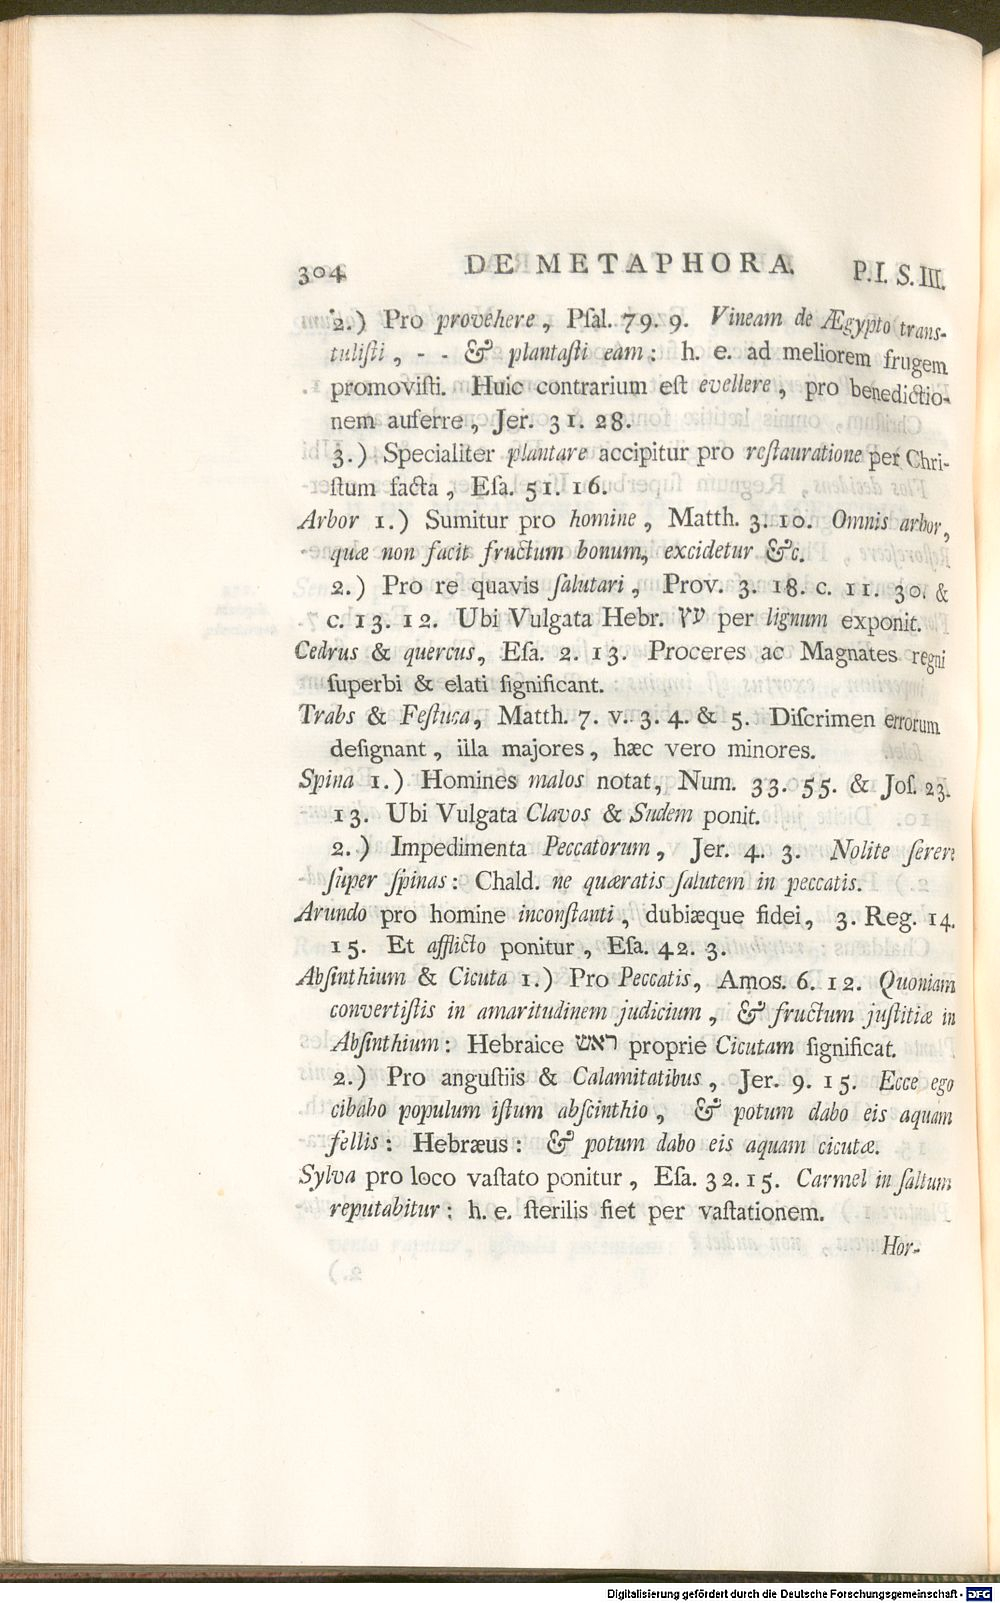 304 DE METAPHORA. P.I. S.III.
2.) Pro provehere, Pſal. 79. 9. Vineam de Ægypto trans-
tuliſti, - - & plantaſti eam: h. e. ad meliorem frugem
promoviſti. Huic contrarium eſt evellere, pro benedictio-
nem auferre, Jer. 31. 28.
3.) Specialiter plantare accipitur pro reſtauratione per Chri-
ſtum facta, Eſa. 51. 16.
Arbor 1.) Sumitur pro homine, Matth. 3. 10. Omnis arbor,
quæ non facit fructum bonum, excidetur &c.
2.) Pro re quavis ſalutari, Prov. 3. 18. c. 11. 30. &
c. 13. 12. Ubi Vulgata Hebr. עץ per lignum exponit.
Cedrus & quercus, Eſa. 2. 13. Proceres ac Magnates regni
ſuperbi & elati ſignificant.
Trabs & Feſtuca, Matth. 7. v. 3. 4. & 5. Diſcrimen errorum
deſignant, illa majores, hæc vero minores.
Spina 1.) Homines malos notat, Num. 33. 55. & Joſ. 23.
13. Ubi Vulgata Clavos & Sudem ponit.
2.) Impedimenta Peccatorum, Jer. 4. 3. Nolite ſerere
ſuper ſpinas: Chald. ne quæratis ſalutem in peccatis.
Arundo pro homine inconſtanti, dubiæque fidei, 3. Reg. 14.
15. Et afflicto ponitur, Eſa. 42. 3.
Abſinthium & Cicuta 1.) Pro Peccatis, Amos. 6. 12. Quoniam
convertiſtis in amaritudinem judicium, & fructum juſtitiæ in
Abſinthium: Hebraice ראש proprie Cicutam ſignificat.
2.) Pro anguſtiis & Calamitatibus, Jer. 9. 15. Ecce ego
cibabo populum iſtum abſcinthio, & potum dabo eis aquam
fellis: Hebræus: & potum dabo eis aquam cicutæ.
Sylva pro loco vaſtato ponitur, Eſa. 32. 15. Carmel in ſaltum
reputabitur: h. e. ſterilis fiet per vaſtationem.
Hor-
Digitalisierung gefördert durch die Deutsche Forschungsgemeinschaft - DFG